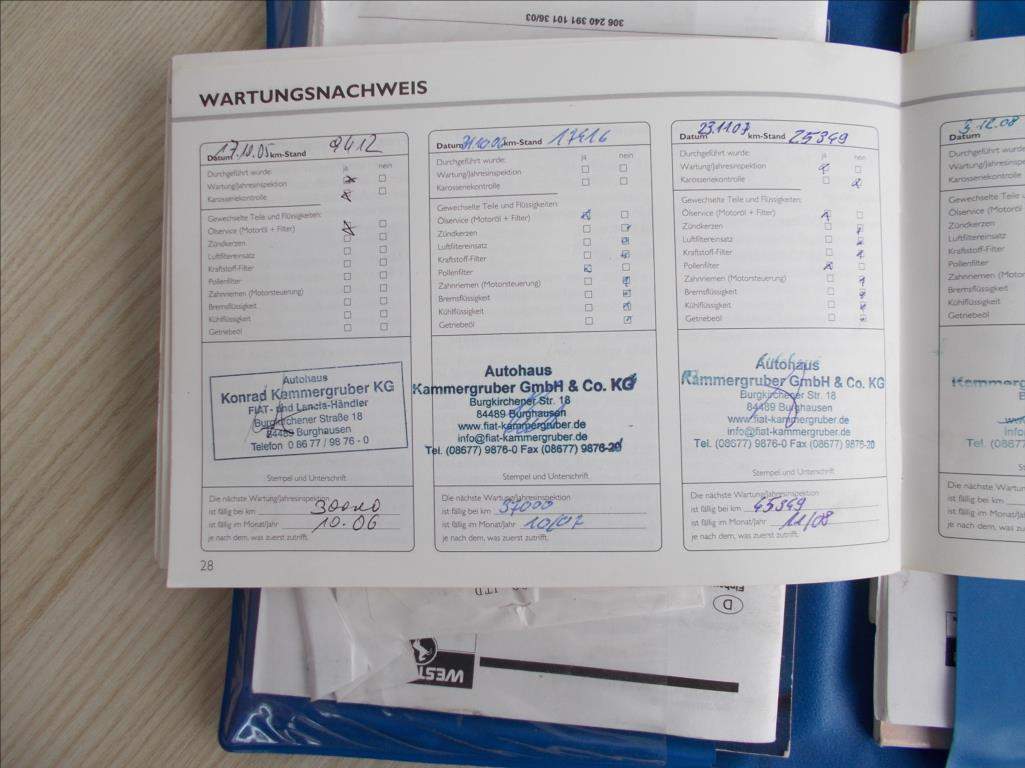 306 240 391 101 36/03
WARTUNGSNACHWEIS
Datum 17.10.05 km-Stand 9412
Durchgeführt wurde: ja nein
Wartung/Jahresinspektion
Karosseriekontrolle
Gewechselte Teile und Flüssigkeiten:
Ölservice (Motoröl + Filter)
Zündkerzen
Luftfiltereinsatz
Kraftstoff-Filter
Pollenfilter
Zahnriemen (Motorsteuerung)
Bremsflüssigkeit
Kühlflüssigkeit
Getriebeöl
Autohaus
Konrad Kammergruber KG
FIAT- und Lancia-Händler
Burgkirchener Straße 18
84489 Burghausen
Telefon 0 86 77 / 98 76 - 0
Stempel und Unterschrift
Die nächste Wartung/Jahresinspektion
ist fällig bei km 30000
ist fällig im Monat/Jahr 10.06
je nach dem, was zuerst zutrifft.
28
Datum km-Stand 17416
Durchgeführt wurde: ja nein
Wartung/Jahresinspektion
Karosseriekontrolle
Gewechselte Teile und Flüssigkeiten:
Ölservice (Motoröl + Filter)
Zündkerzen
Luftfiltereinsatz
Kraftstoff-Filter
Pollenfilter
Zahnriemen (Motorsteuerung)
Bremsflüssigkeit
Kühlflüssigkeit
Getriebeöl
Autohaus
Kammergruber GmbH & Co. KG
Burgkirchener Str. 18
84489 Burghausen
www.fiat-kammergruber.de
info@fiat-kammergruber.de
Tel. (08677) 9876-0 Fax (08677) 9876-20
Stempel und Unterschrift
Die nächste Wartung/Jahresinspektion
ist fällig bei km 37000
ist fällig im Monat/Jahr 10/07
je nach dem, was zuerst zutrifft.
Datum 23.11.07 km-Stand 25349
Durchgeführt wurde: ja nein
Wartung/Jahresinspektion
Karosseriekontrolle
Gewechselte Teile und Flüssigkeiten:
Ölservice (Motoröl + Filter)
Zündkerzen
Luftfiltereinsatz
Kraftstoff-Filter
Pollenfilter
Zahnriemen (Motorsteuerung)
Bremsflüssigkeit
Kühlflüssigkeit
Getriebeöl
Autohaus
Kammergruber GmbH & Co. KG
Burgkirchener Str. 18
84489 Burghausen
www.fiat-kammergruber.de
info@fiat-kammergruber.de
Tel. (08677) 9876-0 Fax (08677) 9876-20
Stempel und Unterschrift
Die nächste Wartung/Jahresinspektion
ist fällig bei km 45349
ist fällig im Monat/Jahr 11/08
je nach dem, was zuerst zutrifft.
Datum 3.12.08
Durchgeführt wurde
Wartung/Jahresinsp
Karosseriekontrolle
Gewechselte Teile u
Ölservice (Motoröl
Zündkerzen
Luftfiltereinsatz
Kraftstoff-Filter
Pollenfilter
Zahnriemen (Moto
Bremsflüssigkeit
Kühlflüssigkeit
Getriebeöl
Kammergr
Tel. (08677)
Die nächste Wartun
ist fällig bei km
ist fällig im Monat/Ja
je nach dem, was zu
D
WEST